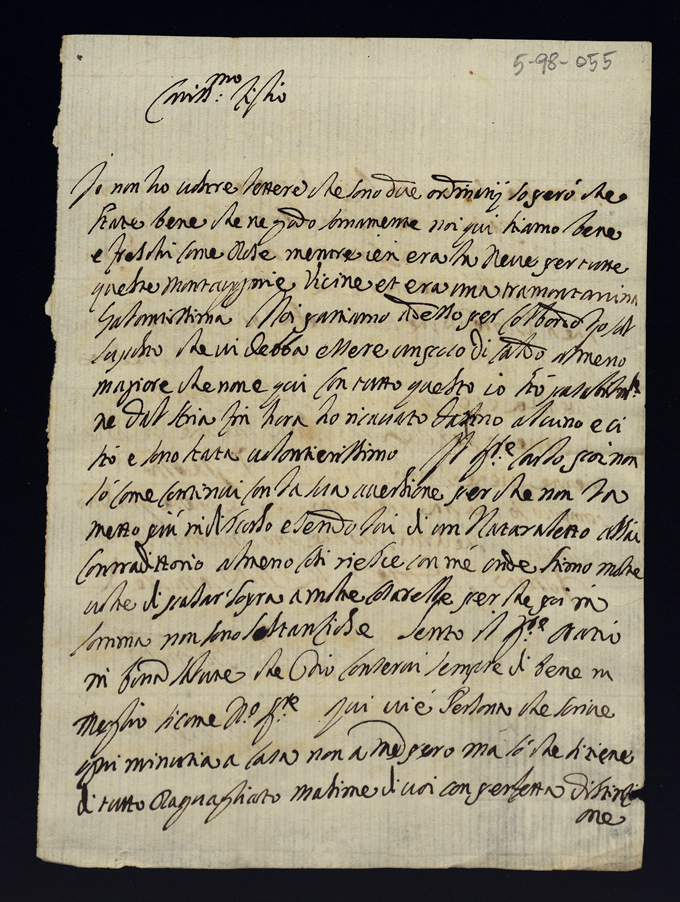 5-98-055
Cariss.mo Figlio
Io non ho vostre lettere che sono due ordinarij so però che
state bene che ne godo somamente noi qui stiamo bene
e freschi come Rose mentre ieri era la Neve per tutte
queste montagnie Vicine et era una tramontanina
Galantissima Noi pariamo adesso per
suposto che vi debba essere un poco di Caldo almeno
magiore che non e qui con tutto questo io stò
ne dal stria fin hora ho ricavato danno alcuno e ci
stò e sono stata volontierissimo Il Sr.e Carlo poi non
sò come continui con la sua aversione per che non la
metto più in discorso essendo lui di un Naturaletto assai
Contradittorio almeno così riesce con mé onde stimo molte
volte di pasar sopra a molte Coselle per che poi in
somma non sono sostanziose sento il Sr.e Oratio
in bona salute che Dio conservi sempre di bene in
Meglio si come Sr.e qui vi é Persona che scrive
ogni minutia a Casa non a me però má sò che si tiene
di tutto Raguagliato masime di voi con perfetta Distinzi
one